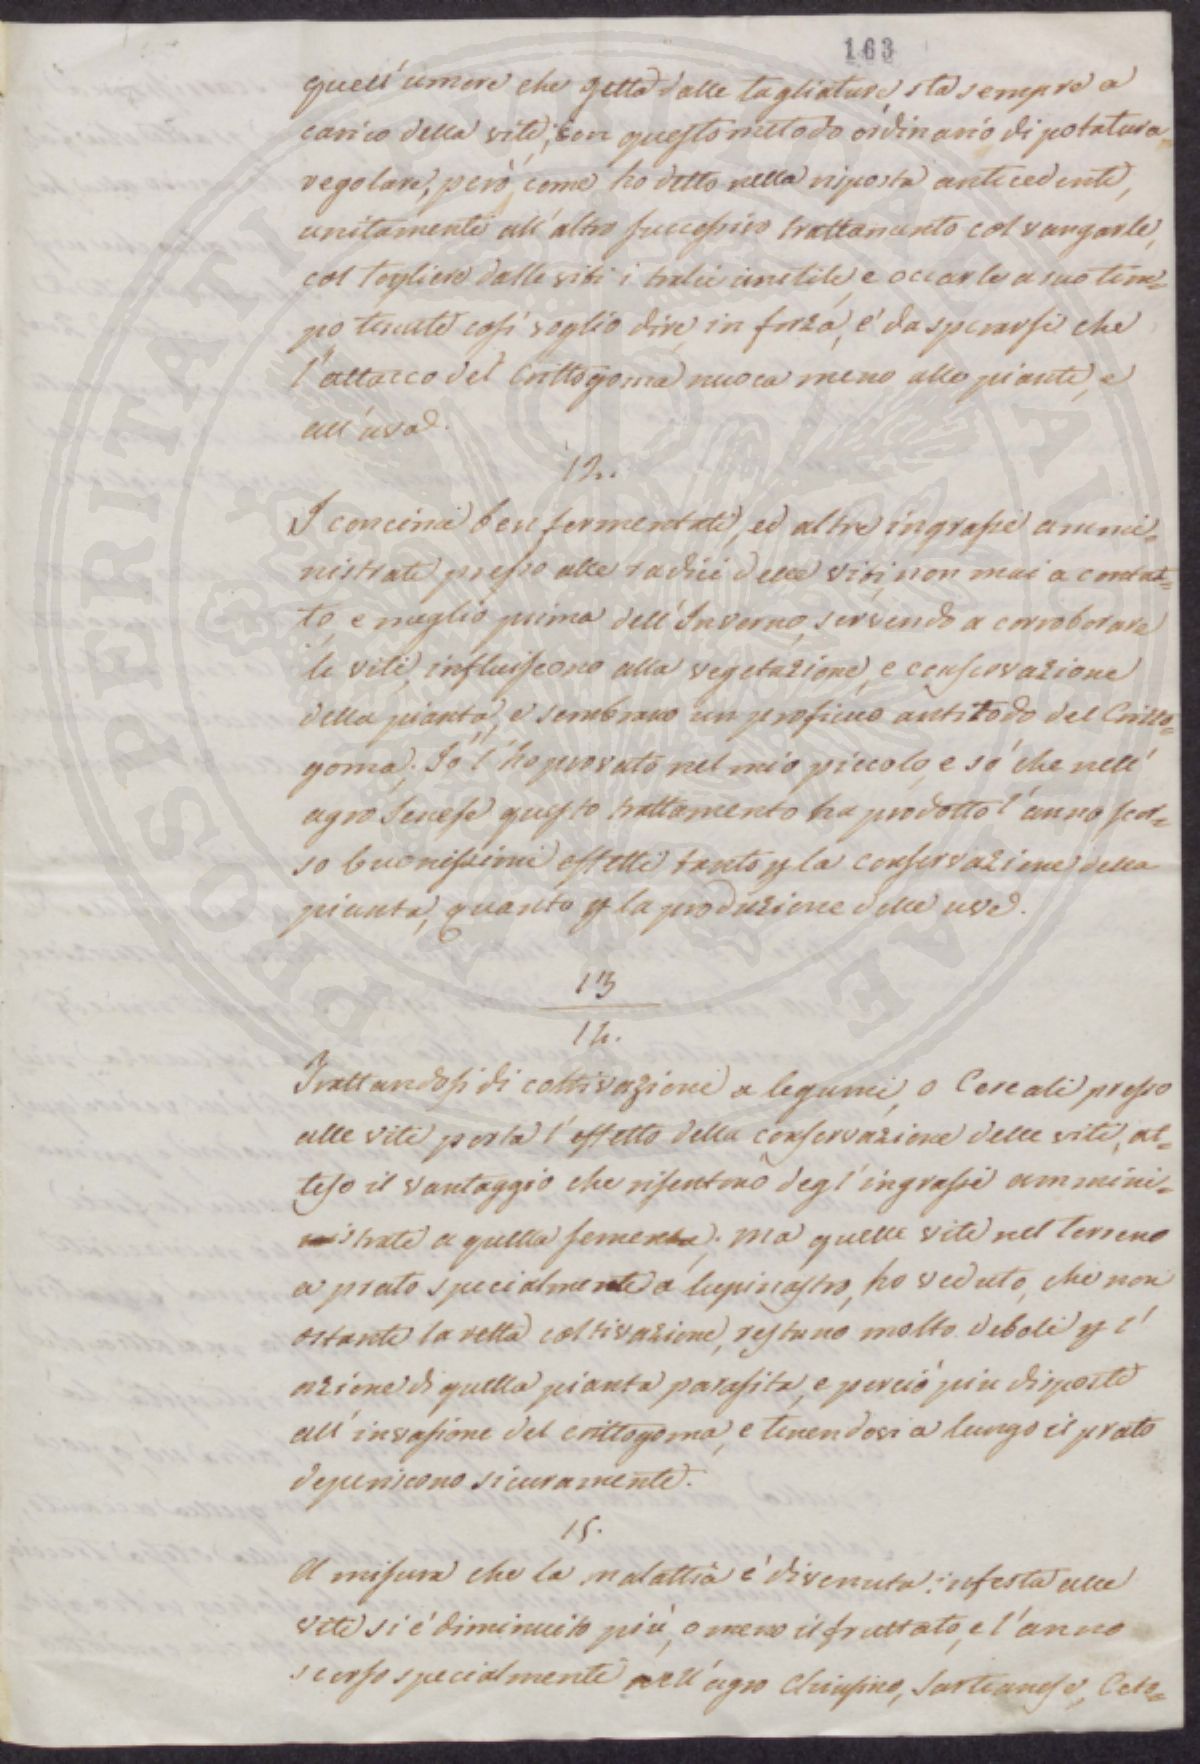 163
quell'umore che getta dalle tagliature, sta sempre a
carico della vite; con questo metodo ordinario di potatura
regolare, però, come ho detto nella risposta antecedente,
unitamente all'altro successivo trattamento col vangarle,
col togliere dalle viti i tralci inutili, e occarle a suo tem=
po tenute così voglio dire, in forza, e' da sperarsi che
l'attacco del Crittogoma nuoca meno alle piante, e
all'uva.
12.
I concimi ben fermentati, ed altre ingrassi ammi=
nistrati presso alle radici delle viti, non mai a contat=
to, e meglio prima dell'Inverno, servendo a corroborare
le viti, influiscono alla vegetazione, e conservazione
della pianta, e sembrano un proficuo antitodo del Critto=
goma. Io l'ho provato nel mio piccolo, e sò che nell'
agro Senese questo trattamento ha prodotto l'anno scor=
so buonissimi effetti tanto p la conservazione della
pianta, quanto p la produzione delle uve.
13
14.
Trattandosi di coltivazioni a legumi, o Cereali presso
alle viti porta l'effetto della conservazione delle viti, at=
teso il vantaggio che risentono degl'ingrassi ammini=
strati a quella sementa; ma quelle viti nel terreno
a prato specialmente a lupinastro, ho veduto, che non
ostante la retta coltivazione, restano molto deboli p l'
azione di quella pianta parasita, e perciò più disposte
all'invasione del crittogoma, e tenendosi a lungo il prato
deperiscono sicuramente.
15.
A misura che la malattia è divenuta infesta alle
viti si è diminuito più, o meno il fruttato, e l'anno
scorso specialmente nell'agro Chiusino, Sarteanese, Ceto=
PROSPERITATI PUBLICAE AUGENDAE